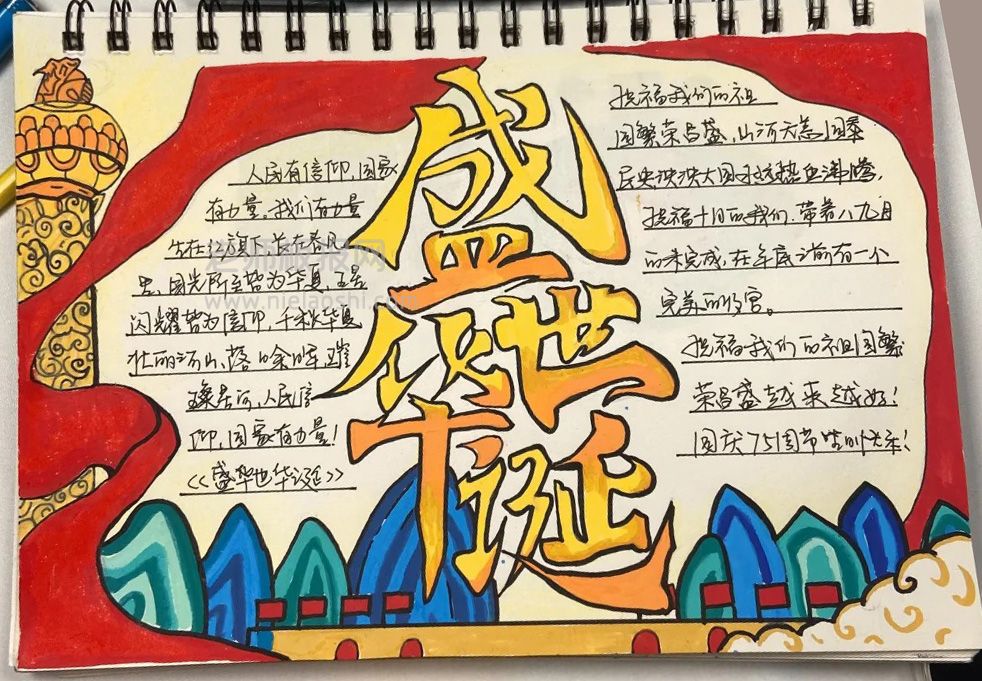 盛世华诞
人民有信仰,国家
有力量,我们有力量
生在红旗下,长在春风
里,目光所至皆为华夏,五星
闪耀皆为信仰,千秋华夏
壮丽河山,落日余晖,璀
璨星河,人民信
仰,国家有力量!
《盛华世华诞》
祝福我们的祖
国繁荣昌盛,山河无恙国泰
民安泱泱大国永远热血沸腾,
祝福十月的我们,带着八九月
的未完成,在年底之前有一个
完美的收官。
祝福我们的祖国繁
荣昌盛越来越好!
国庆75周节生日快乐!
老师板报网
www.nielaoshi.com